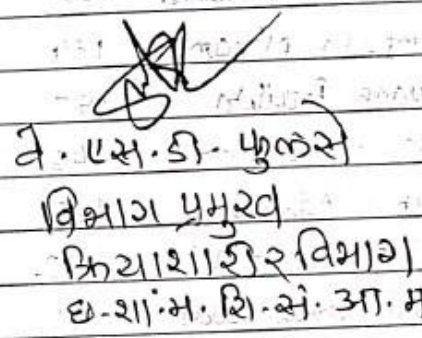 वै. एस. डी. फुलसे
विभाग प्रमुख
क्रियाशारीर विभाग
छ. शां. म. शि. सं. आ. म